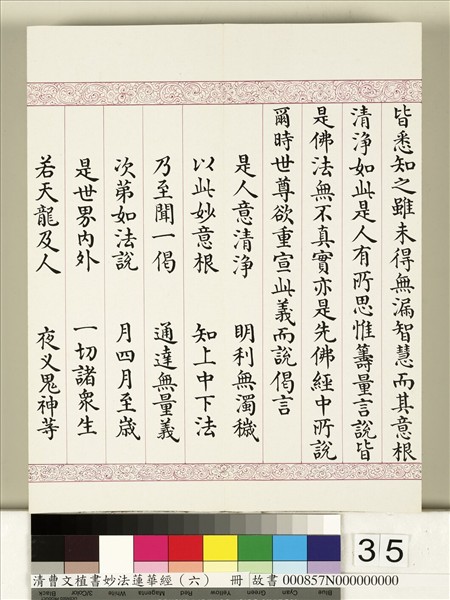 皆悉知之雖未得無漏智慧而其意根
清淨如此是人有所思惟籌量言說皆
是佛法無不真實亦是先佛經中所說
爾時世尊欲重宣此義而說偈言
是人意清淨 明利無濁穢
以此妙意根 知上中下法
乃至聞一偈 通達無量義
次第如法說 月四月至歲
是世界內外 一切諸眾生
若天龍及人 夜叉鬼神等
35
Black 3/Color White Magenta Red Yellow Green Cyan Blue
清曹文植書妙法蓮華經（六） 冊 故書 000857N000000000